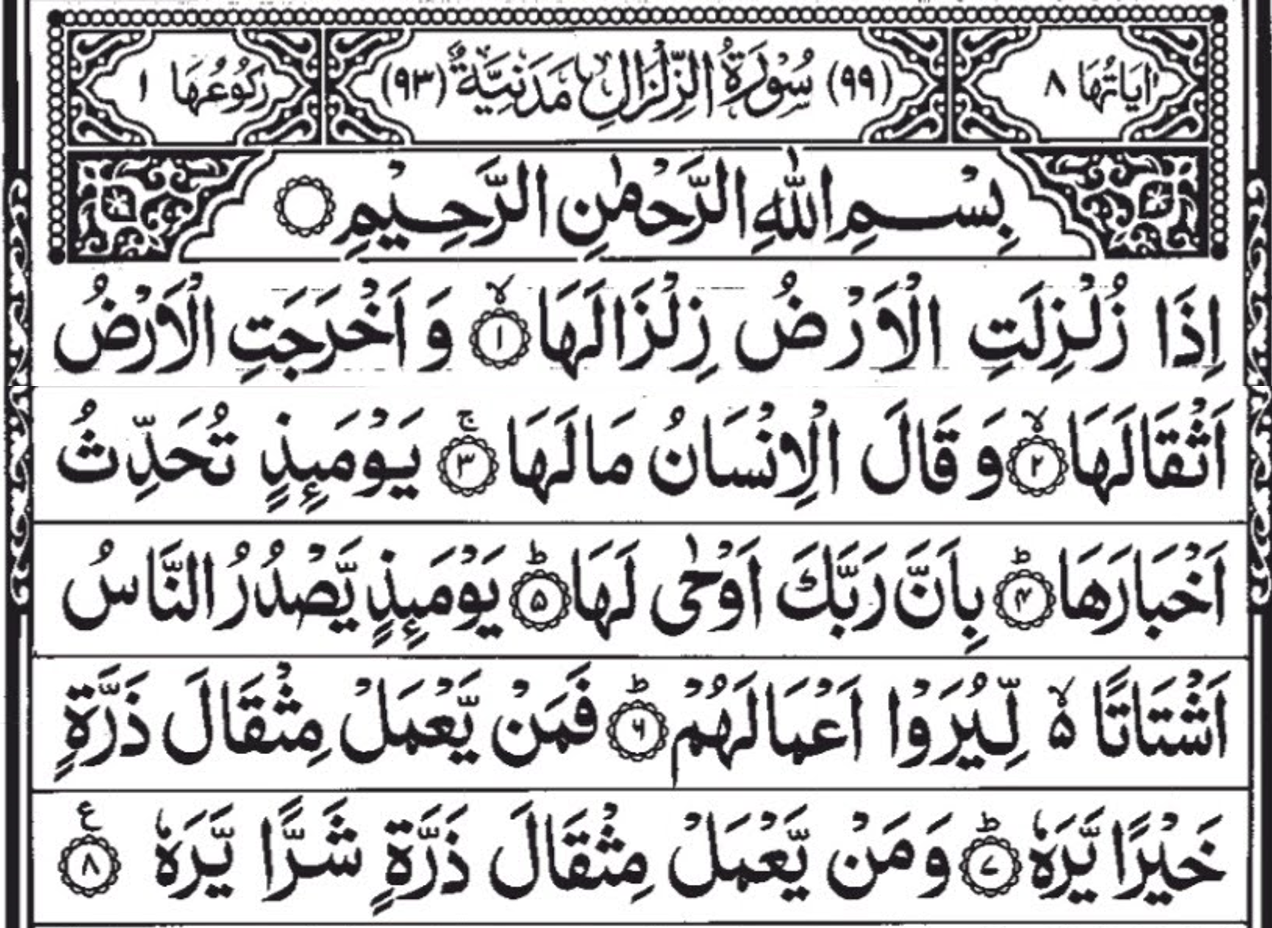 اٰیَاتُهَا ٨ (٩٩) سُوْرَةُ الزِّلْزَالِ مَدَنِیَّةٌ (٩٣) رُكُوْعُهَا ١
بِسْمِ اللّٰهِ الرَّحْمٰنِ الرَّحِیْمِ
اِذَا زُلْزِلَتِ الْاَرْضُ زِلْزَالَهَا ۙ﴿١﴾ وَ اَخْرَجَتِ الْاَرْضُ
اَثْقَالَهَا ۙ﴿٢﴾ وَ قَالَ الْاِنْسَانُ مَا لَهَا ۚ﴿٣﴾ یَوْمَىِٕذٍ تُحَدِّثُ
اَخْبَارَهَا ؕ﴿۴﴾ بِاَنَّ رَبَّكَ اَوْحٰى لَهَا ؕ﴿۵﴾ یَوْمَىِٕذٍ یَّصْدُرُ النَّاسُ
اَشْتَاتًا ۙ۬ لِّیُرَوْا اَعْمَالَهُمْ ؕ﴿۶﴾ فَمَنْ یَّعْمَلْ مِثْقَالَ ذَرَّةٍ
خَیْرًا یَّرَهٗ ؕ﴿٧﴾ وَ مَنْ یَّعْمَلْ مِثْقَالَ ذَرَّةٍ شَرًّا یَّرَهٗ ﴿٨﴾ ع